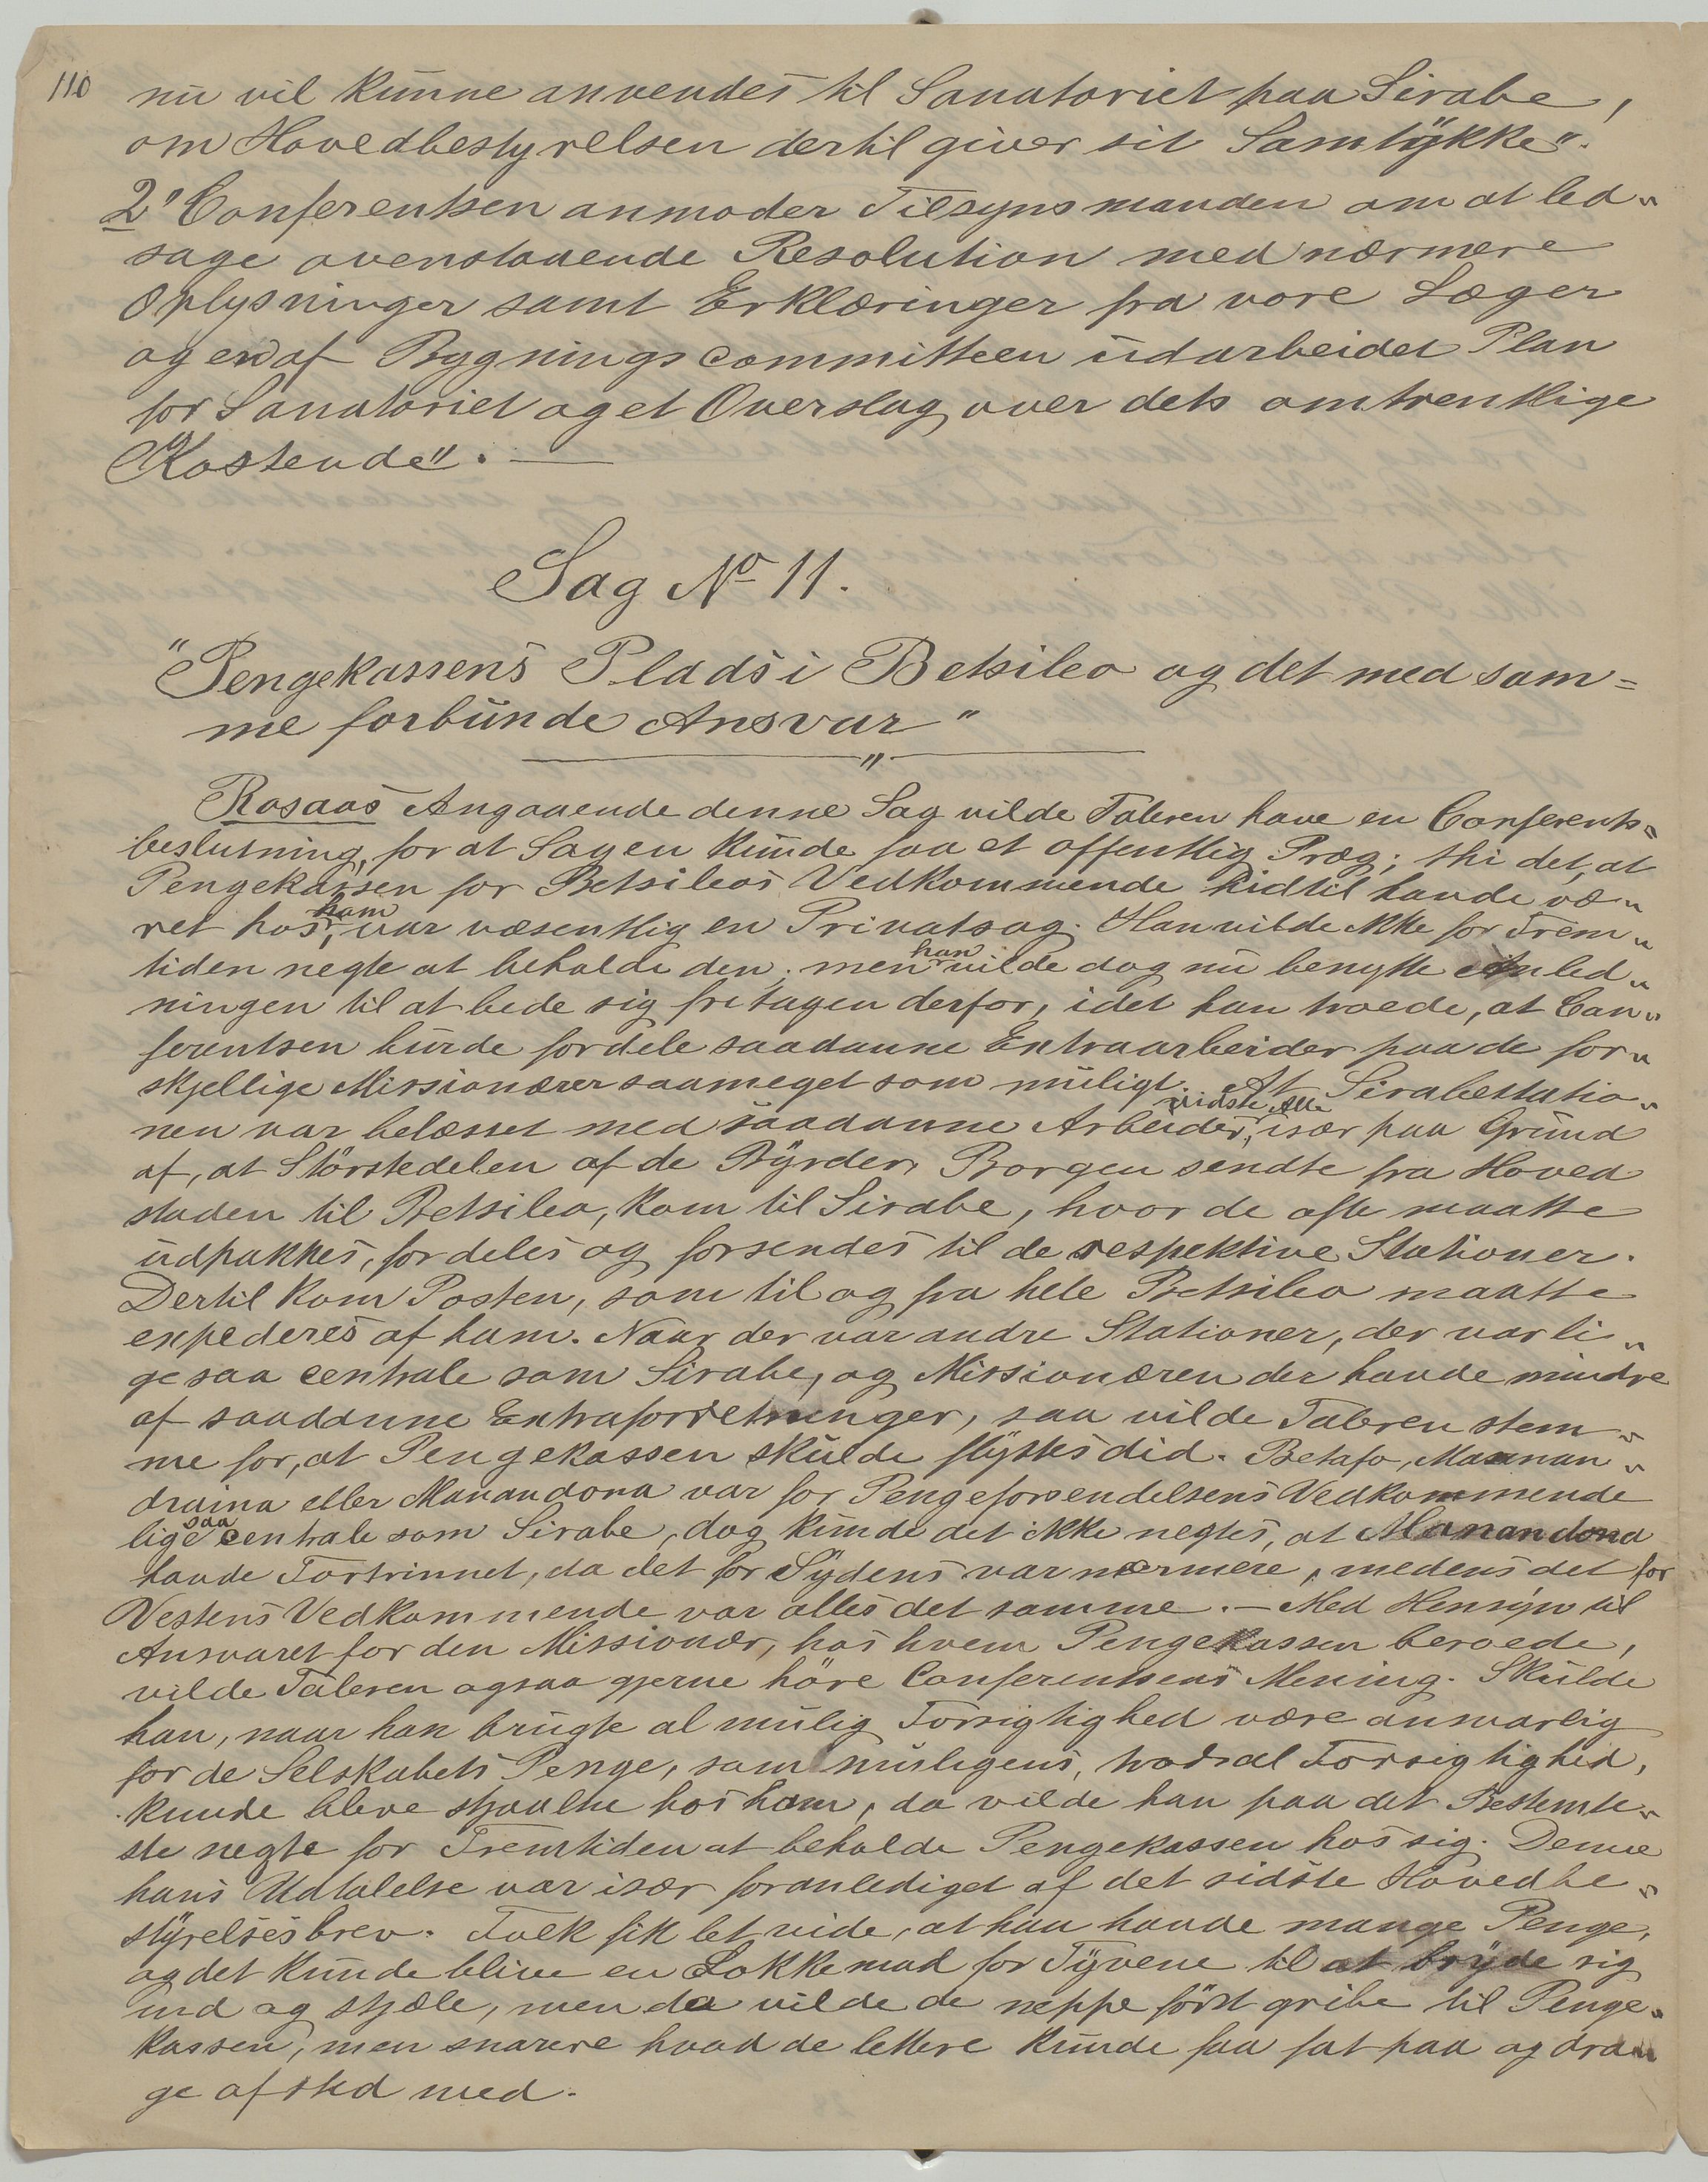 110
nu vil kunne anvendes til Sanatoriet paa Sirabe,
om Hovedbestyrelsen dertil giver sit Samtykke".
2" Conferentsen anmoder Tilsynsmanden om at led-
sage ovenstaaende Resolution med nærmere
Oplysninger samt Erklæringer fra vore Læger
og en af Bygningscommitteen udarbeidet Plan
for Sanatoriet og et Overslag over dets omtrentlige
Kostende". —
Sag No 11.
"Pengekassens Plads i Betsileo og det med sam=
me forbundne Ansvar"
Rosaas Angaaende denne Sag vilde Taleren have en Conferents-
beslutning, for at Sagen kunde faa et offentlig Præg; thi det, at
Pengekassen for Betsileos Vedkommende hidtil havde væ-
ret hos ham, var væsentlig en Privatsag. Han vilde ikke for Frem-
tiden negte at beholde den, men han vilde dog nu benytte Anled-
ningen til at bede sig fritagen derfor, idet han troede, at Con-
ferentsen burde fordele saadanne Extraarbeider paa de for-
skjellige Missionærer saameget som muligt. At Sirabestatio-
nen var belæsset med saadanne Arbeider, vidste Alle, især paa Grund
af, at Störstedelen af de Byrder, Borgen sendte fra Hoved
staden til Betsileo, kom til Sirabe, hvor de ofte maatte
udpakkes, fordeles og forsendes til de respektive Stationer.
Dertil kom Posten, som til og fra hele Betsileo maatte
expederes af ham. Naar der var andre Stationer, der var li-
ge saa centrale som Sirabe, og Missionæren der havde mindre
af saadanne Extraforretninger, saa vilde Taleren stem-
me for, at Pengekassen skulde flyttes did. Betafo, Masinan-
draina eller Manandona var for Pengeforsendelsens Vedkommende
lige saa centrale som Sirabe, dog kunde det ikke negtes, at Manandona
havde Fortrinnet, da det for Sydens var nærmere, medens det for
Vestens Vedkommende var alles det samme. — Med Hensyn til
Ansvaret for den Missionær, hos hvem Pengekassen beroede,
vilde Taleren ogsaa gjerne höre Conferentsens Mening. Skulde
han, naar han brugte al mulig Forsigtighed være ansvarlig
for de Selskabets Penge, som muligens, trods al Forsigtighed,
kunde bleve stjaalne hos ham, da vilde han paa det Bestemte-
ste negte for Fremtiden at beholde Pengekassen hos sig. Denne
hans Udtalelse var især foranlediget af det sidste Hovedbe-
styrelsesbrev. Folk fik let vide, at han havde mange Penge,
og det kunde blive en Lokkemad for Tyvene til at bryde sig
ind og stjæle, men da vilde de neppe först gribe til Penge-
kassen, men snarere hvad de lettere kunde faa fat paa og dra-
ge afsted med.